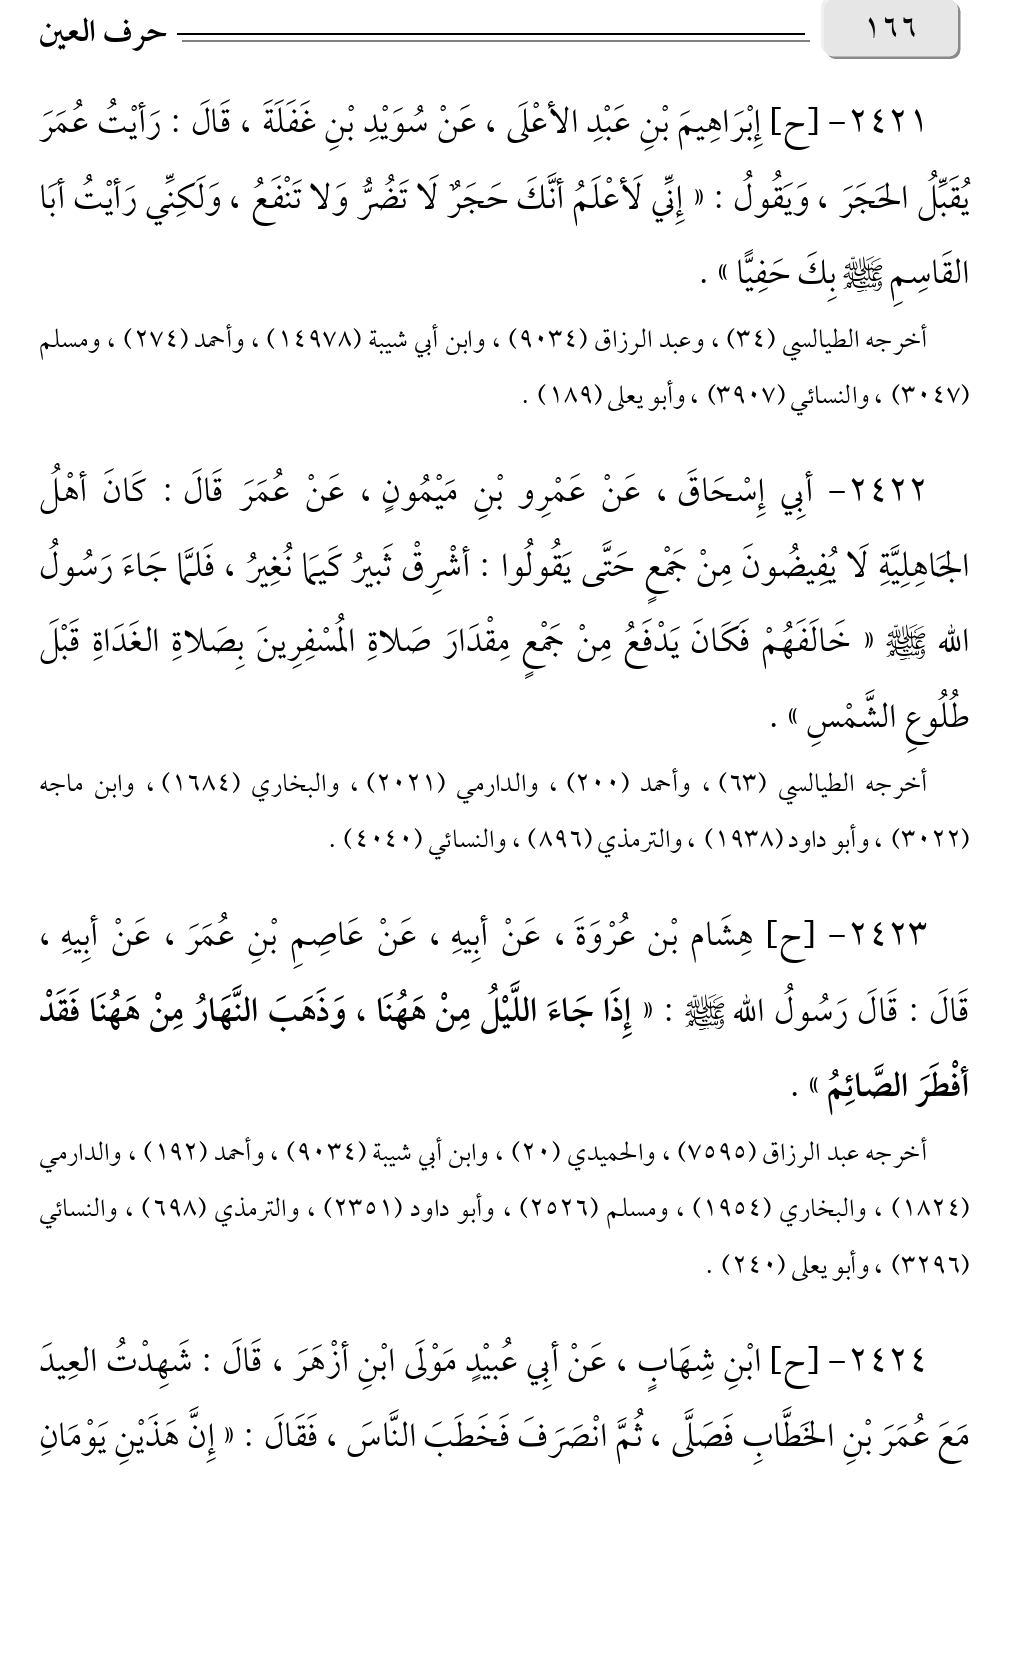 ١٦٦
حرف العين
٢٤٢١- [ح] إِبْرَاهِيمَ بْنِ عَبْدِ الأعْلَى ، عَنْ سُوَيْدِ بْنِ غَفَلَةَ ، قَالَ : رَأيْتُ عُمَرَ
يُقَبِّلُ الحَجَرَ ، وَيَقُولُ : « إِنِّي لَأعْلَمُ أنَّكَ حَجَرٌ لَا تَضُرُّ وَلا تَنْفَعُ ، وَلَكِنِّي رَأيْتُ أبَا
القَاسِمِ ﷺ بِكَ حَفِيًّا » .
أخرجه الطيالسي (٣٤) ، وعبد الرزاق (٩٠٣٤) ، وابن أبي شيبة (١٤٩٧٨) ، وأحمد (٢٧٤) ، ومسلم
(٣٠٤٧) ، والنسائي (٣٩٠٧) ، وأبو يعلى (١٨٩) .
٢٤٢٢- أبِي إِسْحَاقَ ، عَنْ عَمْرِو بْنِ مَيْمُونٍ ، عَنْ عُمَرَ قَالَ : كَانَ أهْلُ
الجَاهِلِيَّةِ لَا يُفِيضُونَ مِنْ جَمْعٍ حَتَّى يَقُولُوا : أشْرِقْ ثَبِيرُ كَيمَا نُغِيرُ ، فَلمَّا جَاءَ رَسُولُ
الله ﷺ « خَالَفَهُمْ فَكَانَ يَدْفَعُ مِنْ جَمْعٍ مِقْدَارَ صَلاةِ المُسْفِرِينَ بِصَلاةِ الغَدَاةِ قَبْلَ
طُلُوعِ الشَّمْسِ » .
أخرجه الطيالسي (٦٣) ، وأحمد (٢٠٠) ، والدارمي (٢٠٢١) ، والبخاري (١٦٨٤) ، وابن ماجه
(٣٠٢٢) ، وأبو داود (١٩٣٨) ، والترمذي (٨٩٦) ، والنسائي (٤٠٤٠) .
٢٤٢٣- [ح] هِشَام بْن عُرْوَةَ ، عَنْ أبِيهِ ، عَنْ عَاصِمِ بْنِ عُمَرَ ، عَنْ أبِيهِ ،
قَالَ : قَالَ رَسُولُ الله ﷺ : « إِذَا جَاءَ اللَّيْلُ مِنْ هَهُنَا ، وَذَهَبَ النَّهَارُ مِنْ هَهُنَا فَقَدْ
أفْطَرَ الصَّائِمُ » .
أخرجه عبد الرزاق (٧٥٩٥) ، والحميدي (٢٠) ، وابن أبي شيبة (٩٠٣٤) ، وأحمد (١٩٢) ، والدارمي
(١٨٢٤) ، والبخاري (١٩٥٤) ، ومسلم (٢٥٢٦) ، وأبو داود (٢٣٥١) ، والترمذي (٦٩٨) ، والنسائي
(٣٢٩٦) ، وأبو يعلى (٢٤٠) .
٢٤٢٤- [ح] ابْنِ شِهَابٍ ، عَنْ أبِي عُبيْدٍ مَوْلَى ابْنِ أزْهَرَ ، قَالَ : شَهِدْتُ العِيدَ
مَعَ عُمَرَ بْنِ الخَطَّابِ فَصَلَّى ، ثُمَّ انْصَرَفَ فَخَطَبَ النَّاسَ ، فَقَالَ : « إِنَّ هَذَيْنِ يَوْمَانِ